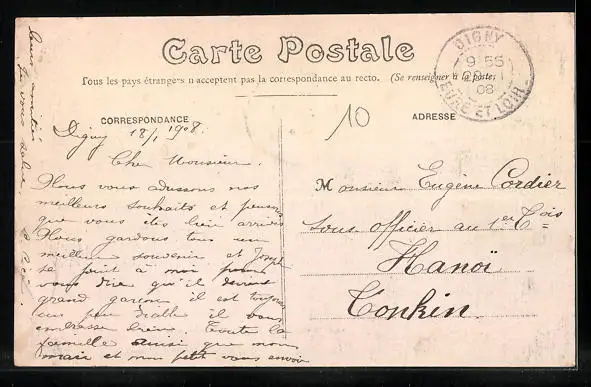 Carte Postale
Tous les pays étrangers n'acceptent pas la correspondance au recto. (Se renseigner à la poste)
DIGNY
9 55
08
EURE ET LOIR
10
CORRESPONDANCE
ADRESSE
Digny 18/1 1908.
Cher Monsieur.
Nous vous adressons nos
meilleurs souhaits et pensons
que vous êtes bien arrivé
Nous gardons tous un
meilleur souvenir et Joseph
se joint à moi pour
vous dire qu'il devient
grand garçon il est toujours
un peu diable il vous
embrasse bien. Toute la
famille ainsi que mon
mari et mon petit vous envoie
leurs amitiés
Je vous salue
Monsieur Eugène Cordier
sous officier au 1er Tois
Hanoï
Tonkin